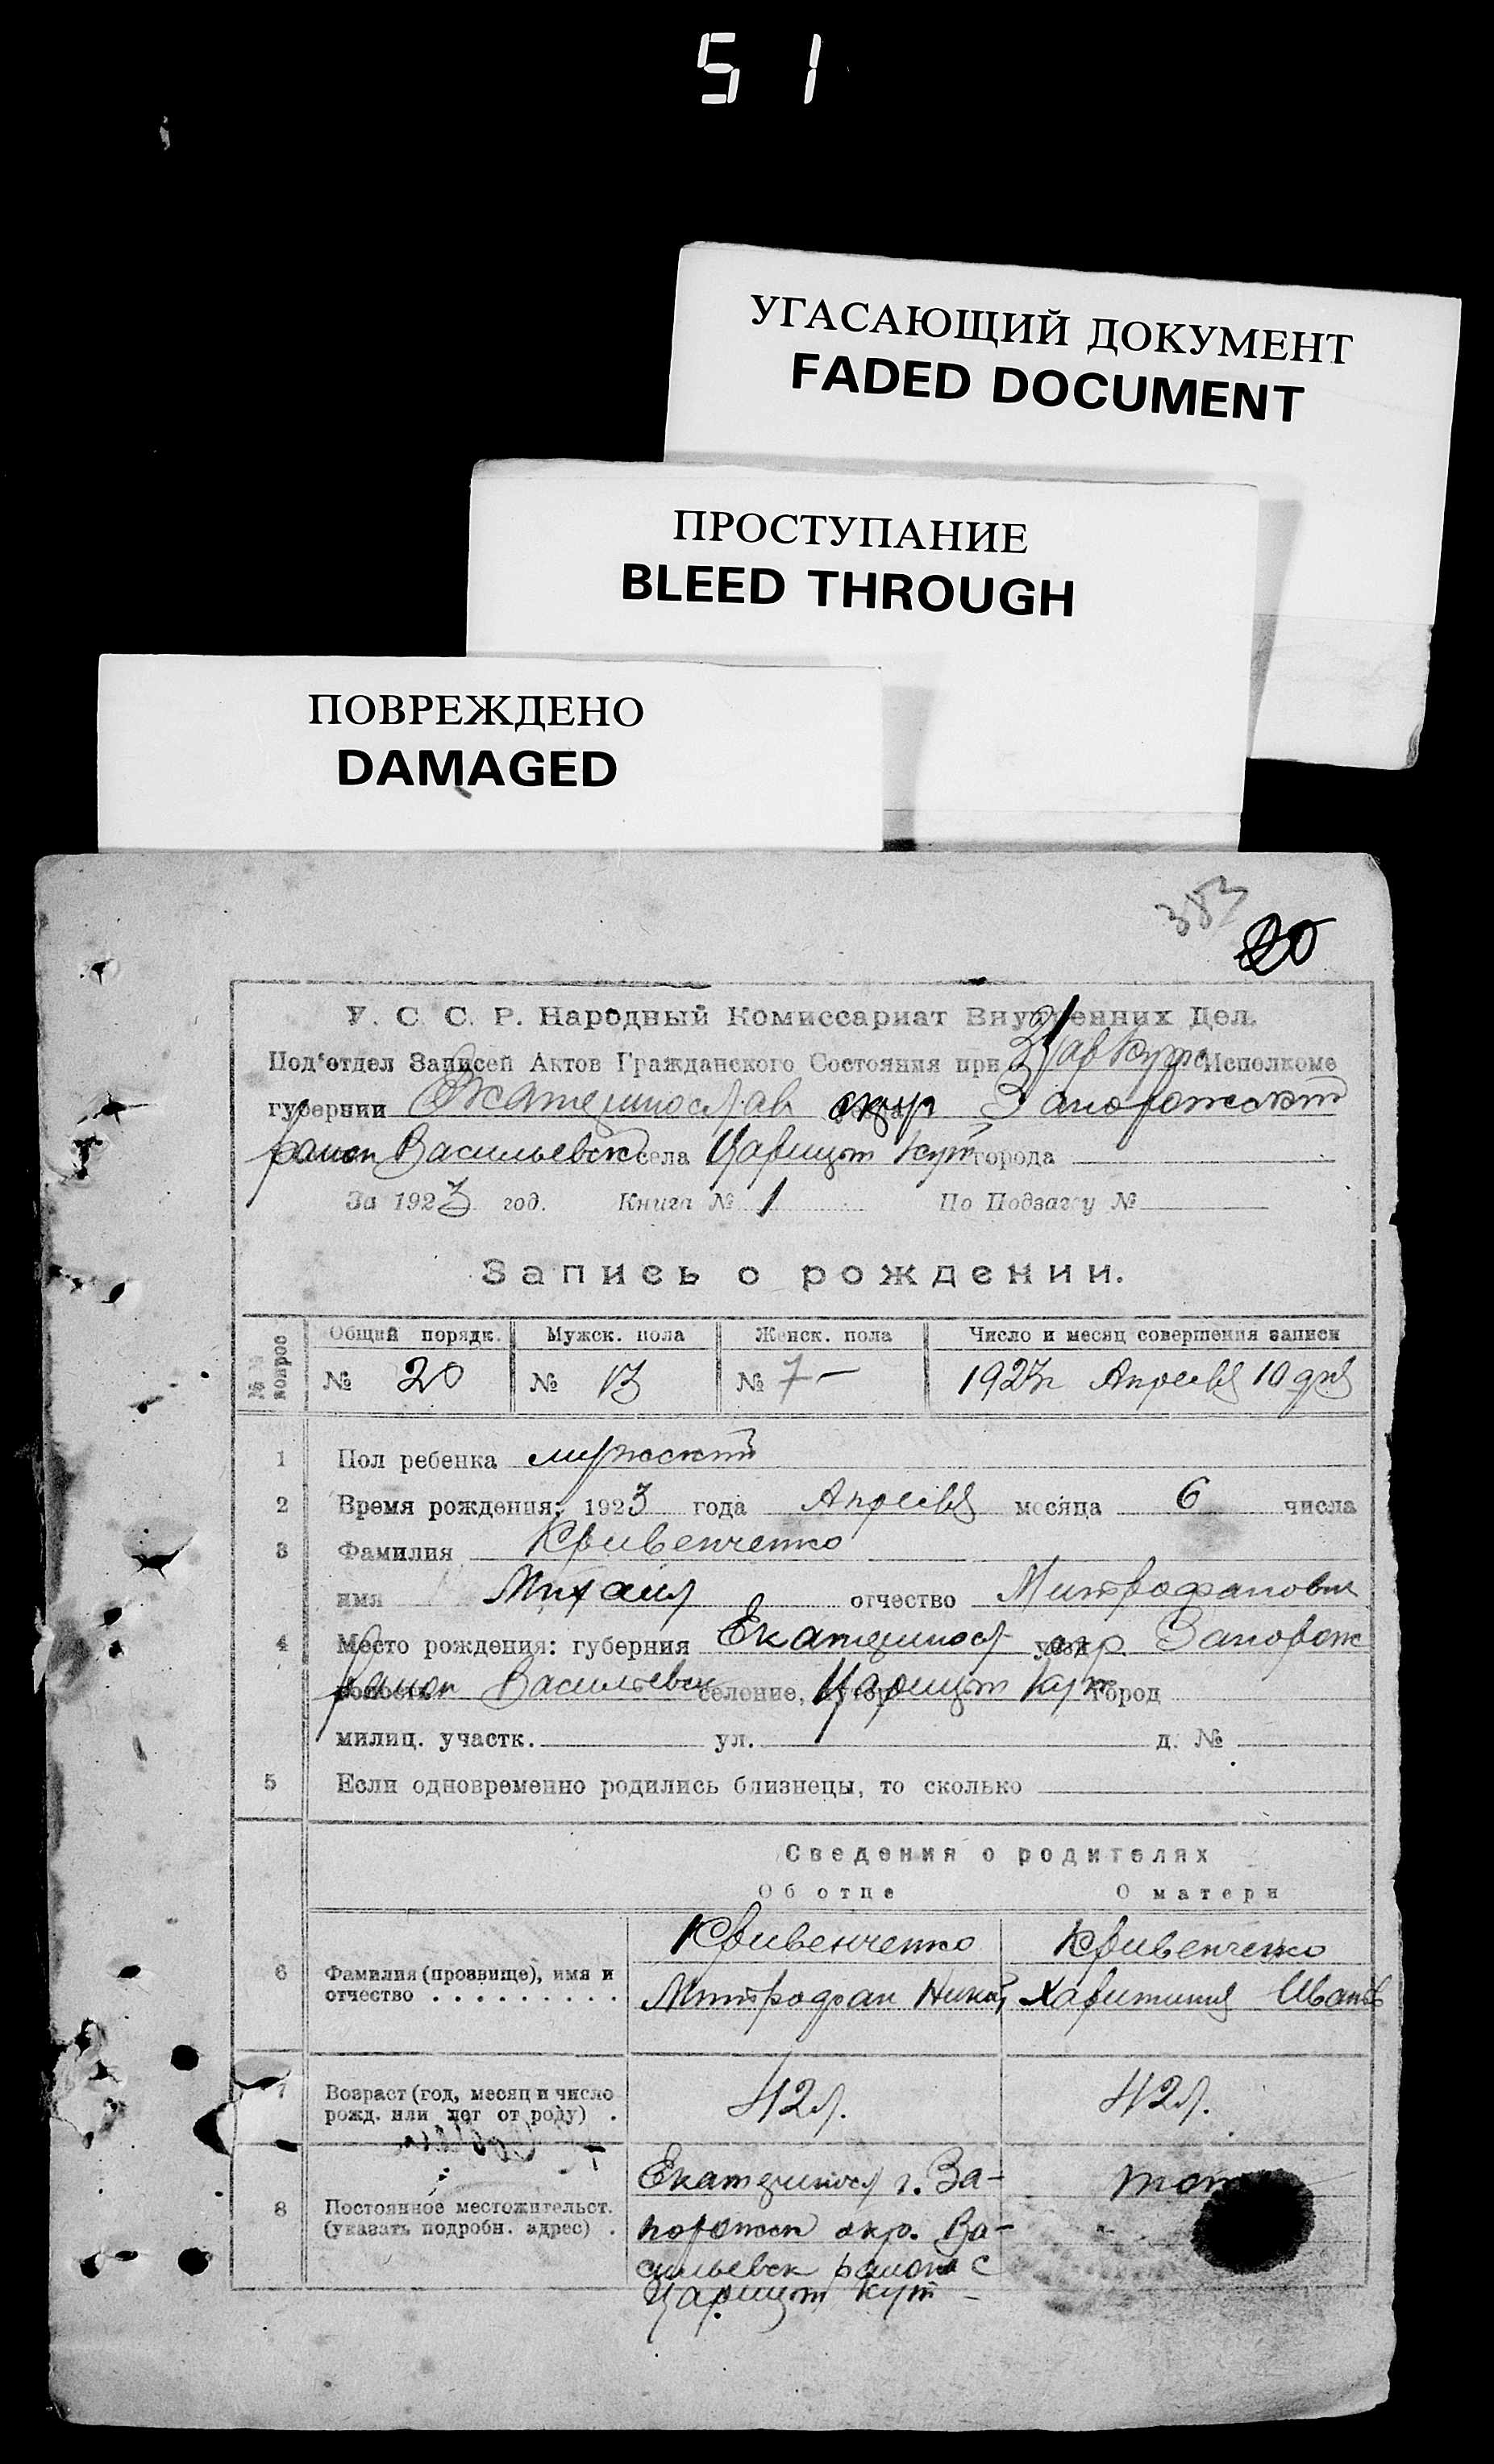 51
УГАСАЮЩИЙ ДОКУМЕНТ
FADED DOCUMENT
ПРОСТУПАНИЕ
BLEED THROUGH
ПОВРЕЖДЕНО
DAMAGED
383
20
У. С. С. Р. Народный Комиссариат Внутренних Дел.
Под'отдел Записей Актов Гражданского Состояния при Исполкоме
губернии Екатеринослав окр Запорожский
район Васильевск села Царицын Кут города
За 1923 год. Книга № 1 По Подзагсу №
Запись о рождении.
№№ вопрос
Общий порядк. Мужск. пола Женск. пола Число и месяц совершения записи
№ 20 № 13 № 7 — 1923 г Апреля 10 дня
1 Пол ребенка мужский
2 Время рождения: 1923 года Апреля месяца 6 числа
3 Фамилия Кривенченко
имя Михаил отчество Митрофанович
4 Место рождения: губерния Екатеринос окр Запорож
район Васильевск селение, хутор Царицын Кут город
милиц. участк. ул. д. №
5 Если одновременно родились близнецы, то сколько
Сведения о родителях
Об отце О матери
Кривенченко Кривенченко
6 Фамилия (прозвище), имя и
отчество . . . . . . . . . Митрофан Никит Харитиния Иванов
7 Возраст (год, месяц и число
рожд. или лет от роду) . 42 л. 42 л.
Екатеринос г. За-
8 Постоянное местожительст.
(указать подробн. адрес) . порожск окр. Ва-
сильевск района с
Царицын Кут